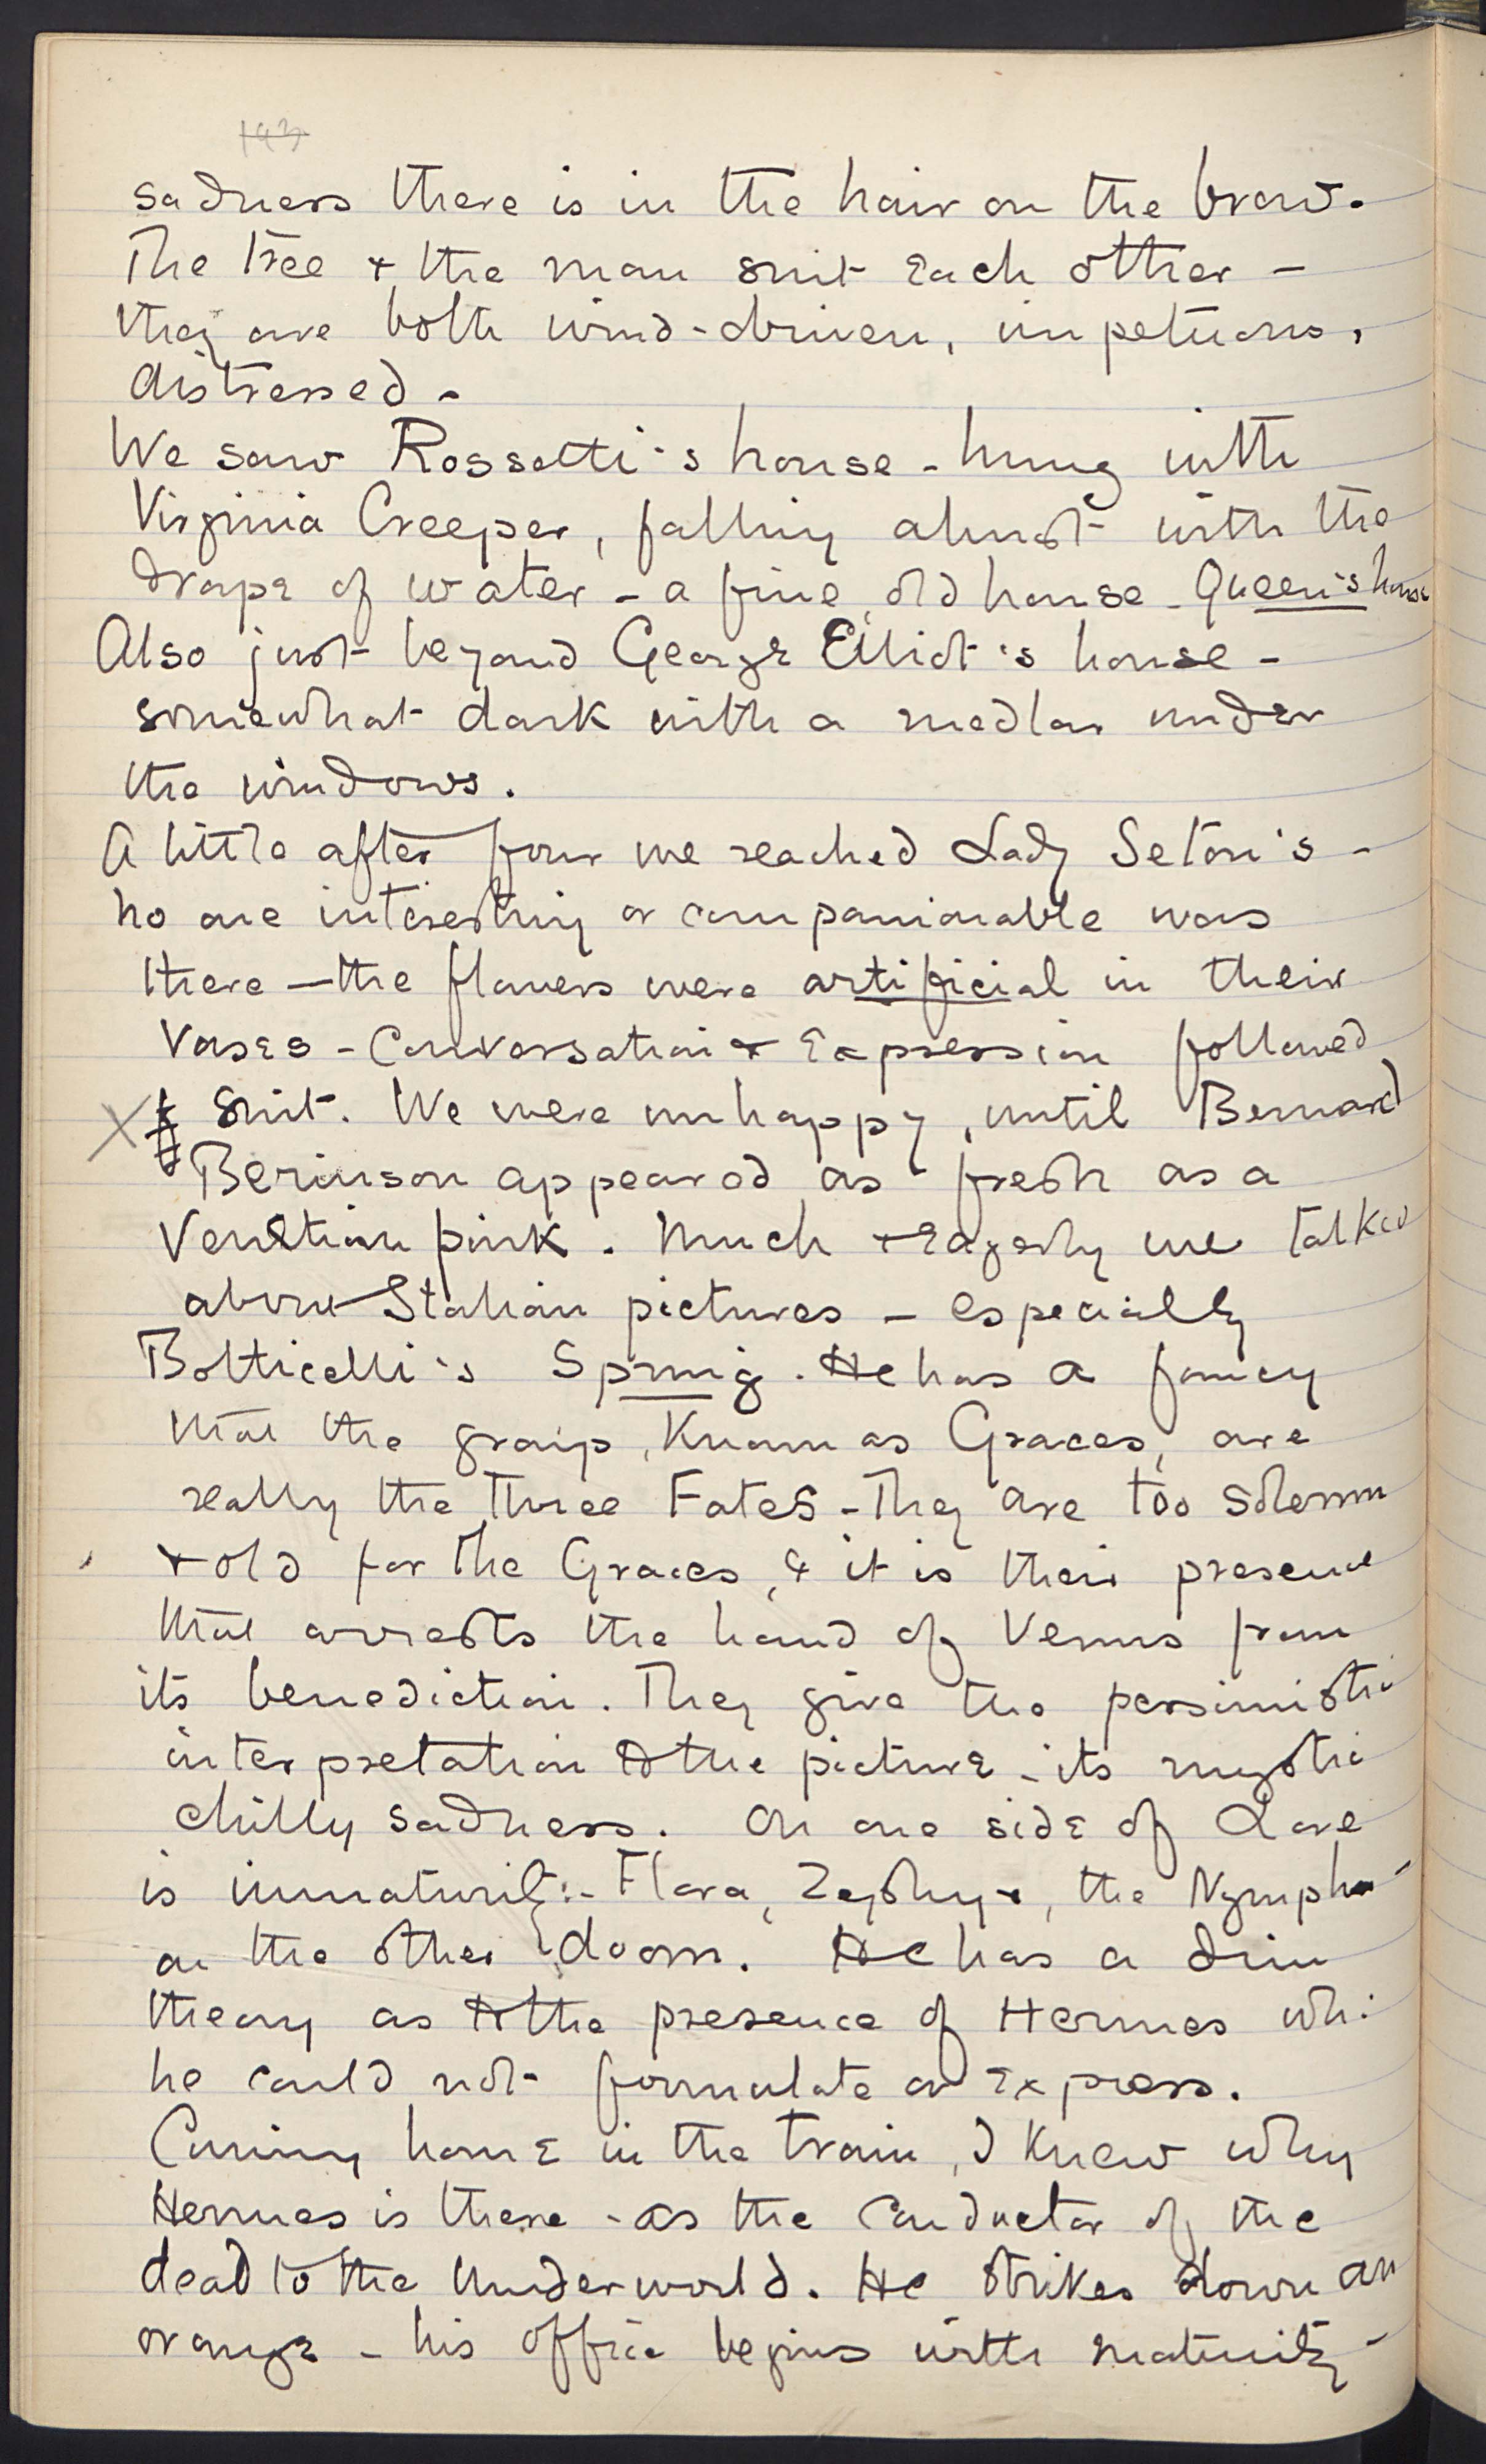 143
sadness there is in the hair on the brow.
The tree & the man suit each other -
they are both wind-driven, impetuous,
distressed -
We saw Rossetti's house - hung with
Virginia Creeper, falling almost with the
drape of water - a fine old house - Queen's house
Also just beyond George Elliot's house -
somewhat dark with a medlar under
the windows.
A little after four we reached Lady Seton's -
no one interesting or companionable was
there — the flowers were artificial in their
vases - Conversation & Expression followed
suit. We were unhappy, until Bernard
Berinson appeared as fresh as a
Venetian pink. Much & eagerly we talked
about Italian pictures - especially
Botticelli's Spring. He has a fancy
that the group, known as Graces, are
really the Three Fates - They are too solemn
& old for the Graces, & it is their presence
that arrests the hand of Venus from
its benediction. They give the pessimistic
interpretation to the picture - its mystic
chilly sadness. On one side of Love
is immaturity:- Flora, Zephyr, the Nymph -
on the other doom. He has a dim
theory as to the presence of Hermes wh:
he could not formulate or express.
Coming home in the train, I knew why
Hermes is there - as the Conductor of the
dead to the Underworld. He strikes down an
orange - his office begins with maturity -